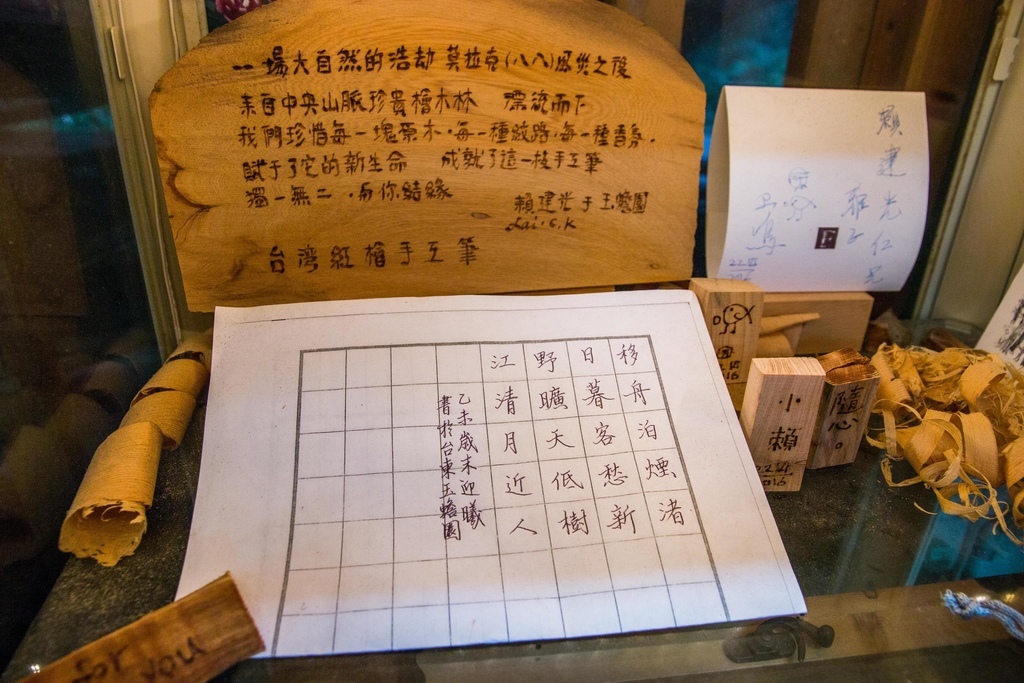 一場大自然的浩劫 莫拉克(八八)風災之後
來自中央山脈珍貴檜木林 漂流而下
我們珍惜每一塊原木,每一種紋路,每一種香氣,
賦于了它的新生命 成就了這一枝手工筆
獨一無二,与你結緣
賴建光于玉蟾園
Lai.C.K
台灣紅檜手工筆
賴建光仁兄
移舟泊煙渚
日暮客愁新
野曠天低樹
江清月近人
乙未歲末迎曦
書於台東玉蟾園
小賴
隨心。
for you